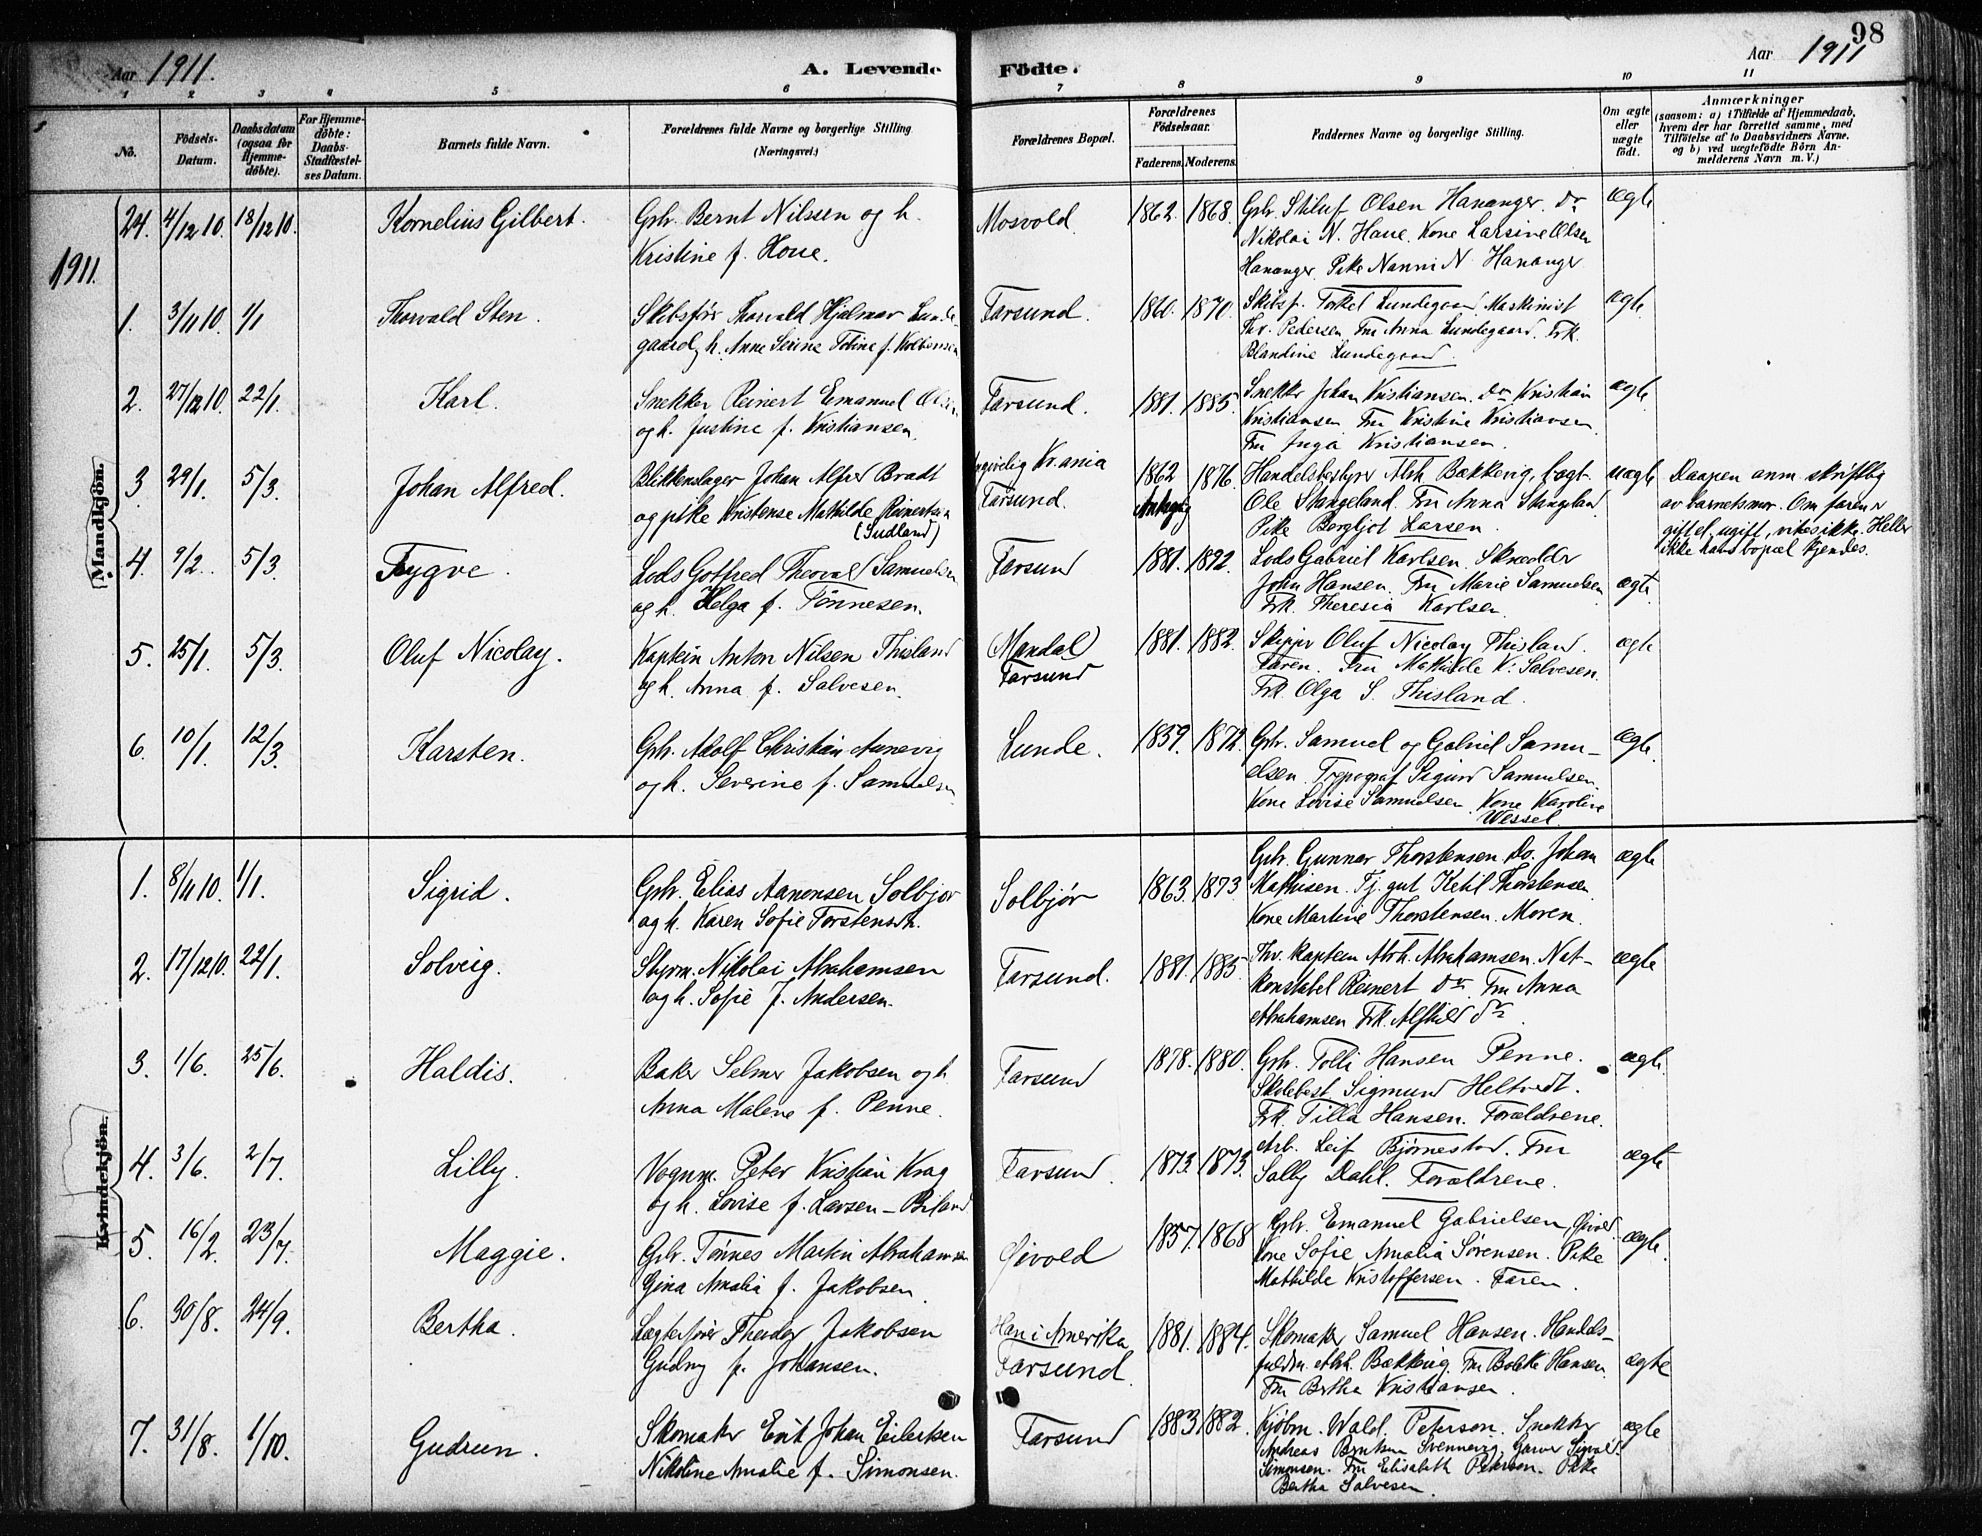 98
Aar 1911. A. Levende Födte. Aar 1911
1 2 3 4 5 6 7 8 9 10 11
No.
Födsels-
Datum.
Daabsdatum
(ogsaa for
Hjemme-
döbte).
For Hjemme-
döbte:
Daabs-
Stadfæstel-
ses Datum.
Barnets fulde Navn.
Forældrenes fulde Navne og borgerlige Stilling
(Næringsvei.)
Forældrenes Bopæl.
Forældrenes
Födselsaar.
Faderens. Moderens.
Faddernes Navne og borgerlige Stilling.
Om ægte
eller
uægte
födt.
Anmærkninger
(saasom: a) i Tilfælde af Hjemmedaab,
hvem der har forrettet samme, med
Tilföielse af to Daabsvidners Navne.
og b) ved uægtefödte Börn An-
melderens Navn m. V.)
24. 4/12 10. 18/12 10. Kornelius Gilbert. Grb. Bernt Nilssen og h.
Kristine f. Houe.
Mosvold. 1862. 1868. Grb. Stiluf Olsen Hananger. Do
Nikolai N. Haue. Kone Larsine Olsen
Hananger. Pike Nanni N. Hananger
ægte
1911.
Mandkjön.
1. 3/11 10. 1/1 Thorvald Sten. Skibsfører Thorvald Hjalmar Lunde-
gaard, h. Anne Serine Tobine f. Kolbensen
Farsund. 1860. 1870. Skibsf. Torkel Lundegaard Maskinist
Thv. Pedersen Fru Anna Lundegaard. Frk.
Blandine Lundegaard
ægte
2. 27/12 10. 22/1. Karl. Snekker Reinert Emanuel Olsen
og h. Justine f. Kristiansen.
Farsund. 1881. 1885. Snekkr Johan Kristiansen. Do Kristian
Kristiansen Fru Kristine Kristiansen.
Fru Inga Kristiansen.
ægte
3 29/1. 5/3. Johan Alfred. Blikkenslager Johan Alfred Bratt
og pike Kristense Mathilde Reinertsen
(Sudland)
angivelig Kr.ania
Farsund.
1862 1876. Handelsbestyrer Abh. Bækkevig, fogt.
Ole Stangeland. Fru Anna Stangeland
Pike Bergljot Larsen.
uægte Daapen anm. skriftlig
av barnets mor. Om faren er
giftet, ugift, vites ikke. Heller
ikke hans bopæl kjendes.
4. 9/2. 5/3. Tygve. Lods Gotfred Thorval Samuelsen
og h. Helga f. Tønnesen.
Farsund 1881. 1892. Lods Gabriel Karlsen. Skræder
John Hansen. Fru Marie Samuelsen
Frk. Theresia Karlsen
ægte
5. 25/1. 5/3. Oluf Nicolay. Kaptein Anton Nilsen Thisland
og h. Anna f. Salvesen.
Mandal
Farsund
1881. 1882. Skipper Oluf Nicolay Thisland.
Faren. Fru Mathilde K. Salvesen.
Frk Olga S. Thisland.
ægte
6. 10/1. 12/3. Karsten. Grb. Adolf Christian Aunevig
og h. Severine f. Samuelsen
Lunde. 1859. 1872. Grb. Samuel og Gabriel Samu-
elsen. Typograf Sigurd Samuelsen.
Kone Lovise Samuelsen. Kone Karoline
Wessel.
ægte.
Kvindekjön.
1. 8/11 10. 1/1. Sigrid. Grb. Elias Aanensen Solbjør
og h. Karen Sofie Torstensdt.
Solbjør 1863. 1873. Grb. Gunnar Thorstensen Do. Johan
Mathisen. Tj. gut Ketil Thorstensen
Kone Martine Thorstensen. Moren.
ægte
2. 17/12 10. 22/1. Solveig. Styrm. Nikolai Abrahamsen
og h. Sofie f. Andersen.
Farsund. 1881. 1885. Thv. kaptein Abrh. Abrahamsen. Nat-
konstabel Reinert Do. Fru Anna
Abrahamsen Frk. Alfhild do
ægte
3. 1/6. 25/6. Haldis. Baker Selmer Jakobsen og h.
Anna Malene f. Penne.
Farsund 1878. 1880. Grb. Tolli Hansen Penne.
Skolebest Sigmund Heltvedt.
Frk. Tilla Hansen. Forældrene.
ægte.
4. 3/6. 2/7. Lilly. Vognm. Peter Kristian Krag
og h. Lovise f. Larsen - Biland
Farsund. 1873. 1873. Arb. Leif Bjørnestad. Fru
Sally Dahl. Forældrene.
ægte
5. 16/2. 23/7. Maggie. Grb. Tønnes Martin Abrahamsen
Gina Amalia f. Jakobsen.
Øivold 1857. 1868 Grb. Emanuel Gabrielsen, Øivold.
Kone Sofie Amalia Sørensen. Pike
Mathilde Kristoffersen. Faren.
ægte.
6. 30/8. 24/9. Bertha. Lægterfører Theodor Jakobsen
Gudny f. Johansen.
Han i Amerika
Farsund.
1881. 1884. Skomaker Samuel Hansen. Handels-
fuldm. Abh. Bækkevig. Fru Bolette Hansen.
Fru Bertha Kristiansen.
ægte
7. 31/8. 1/10. Gudrun. Skomaker Erik Johan Eilertsen
Nikoline Amalie f. Simonsen.
Farsund 1883 1882. Kjøbm. Wald. Peterson. Snekker
Andreas Berntsen Svennevig, Garver Sigvald
Simonsen. Fru Elisabeth Peterson. Pike
Bertha Salvesen.
ægte